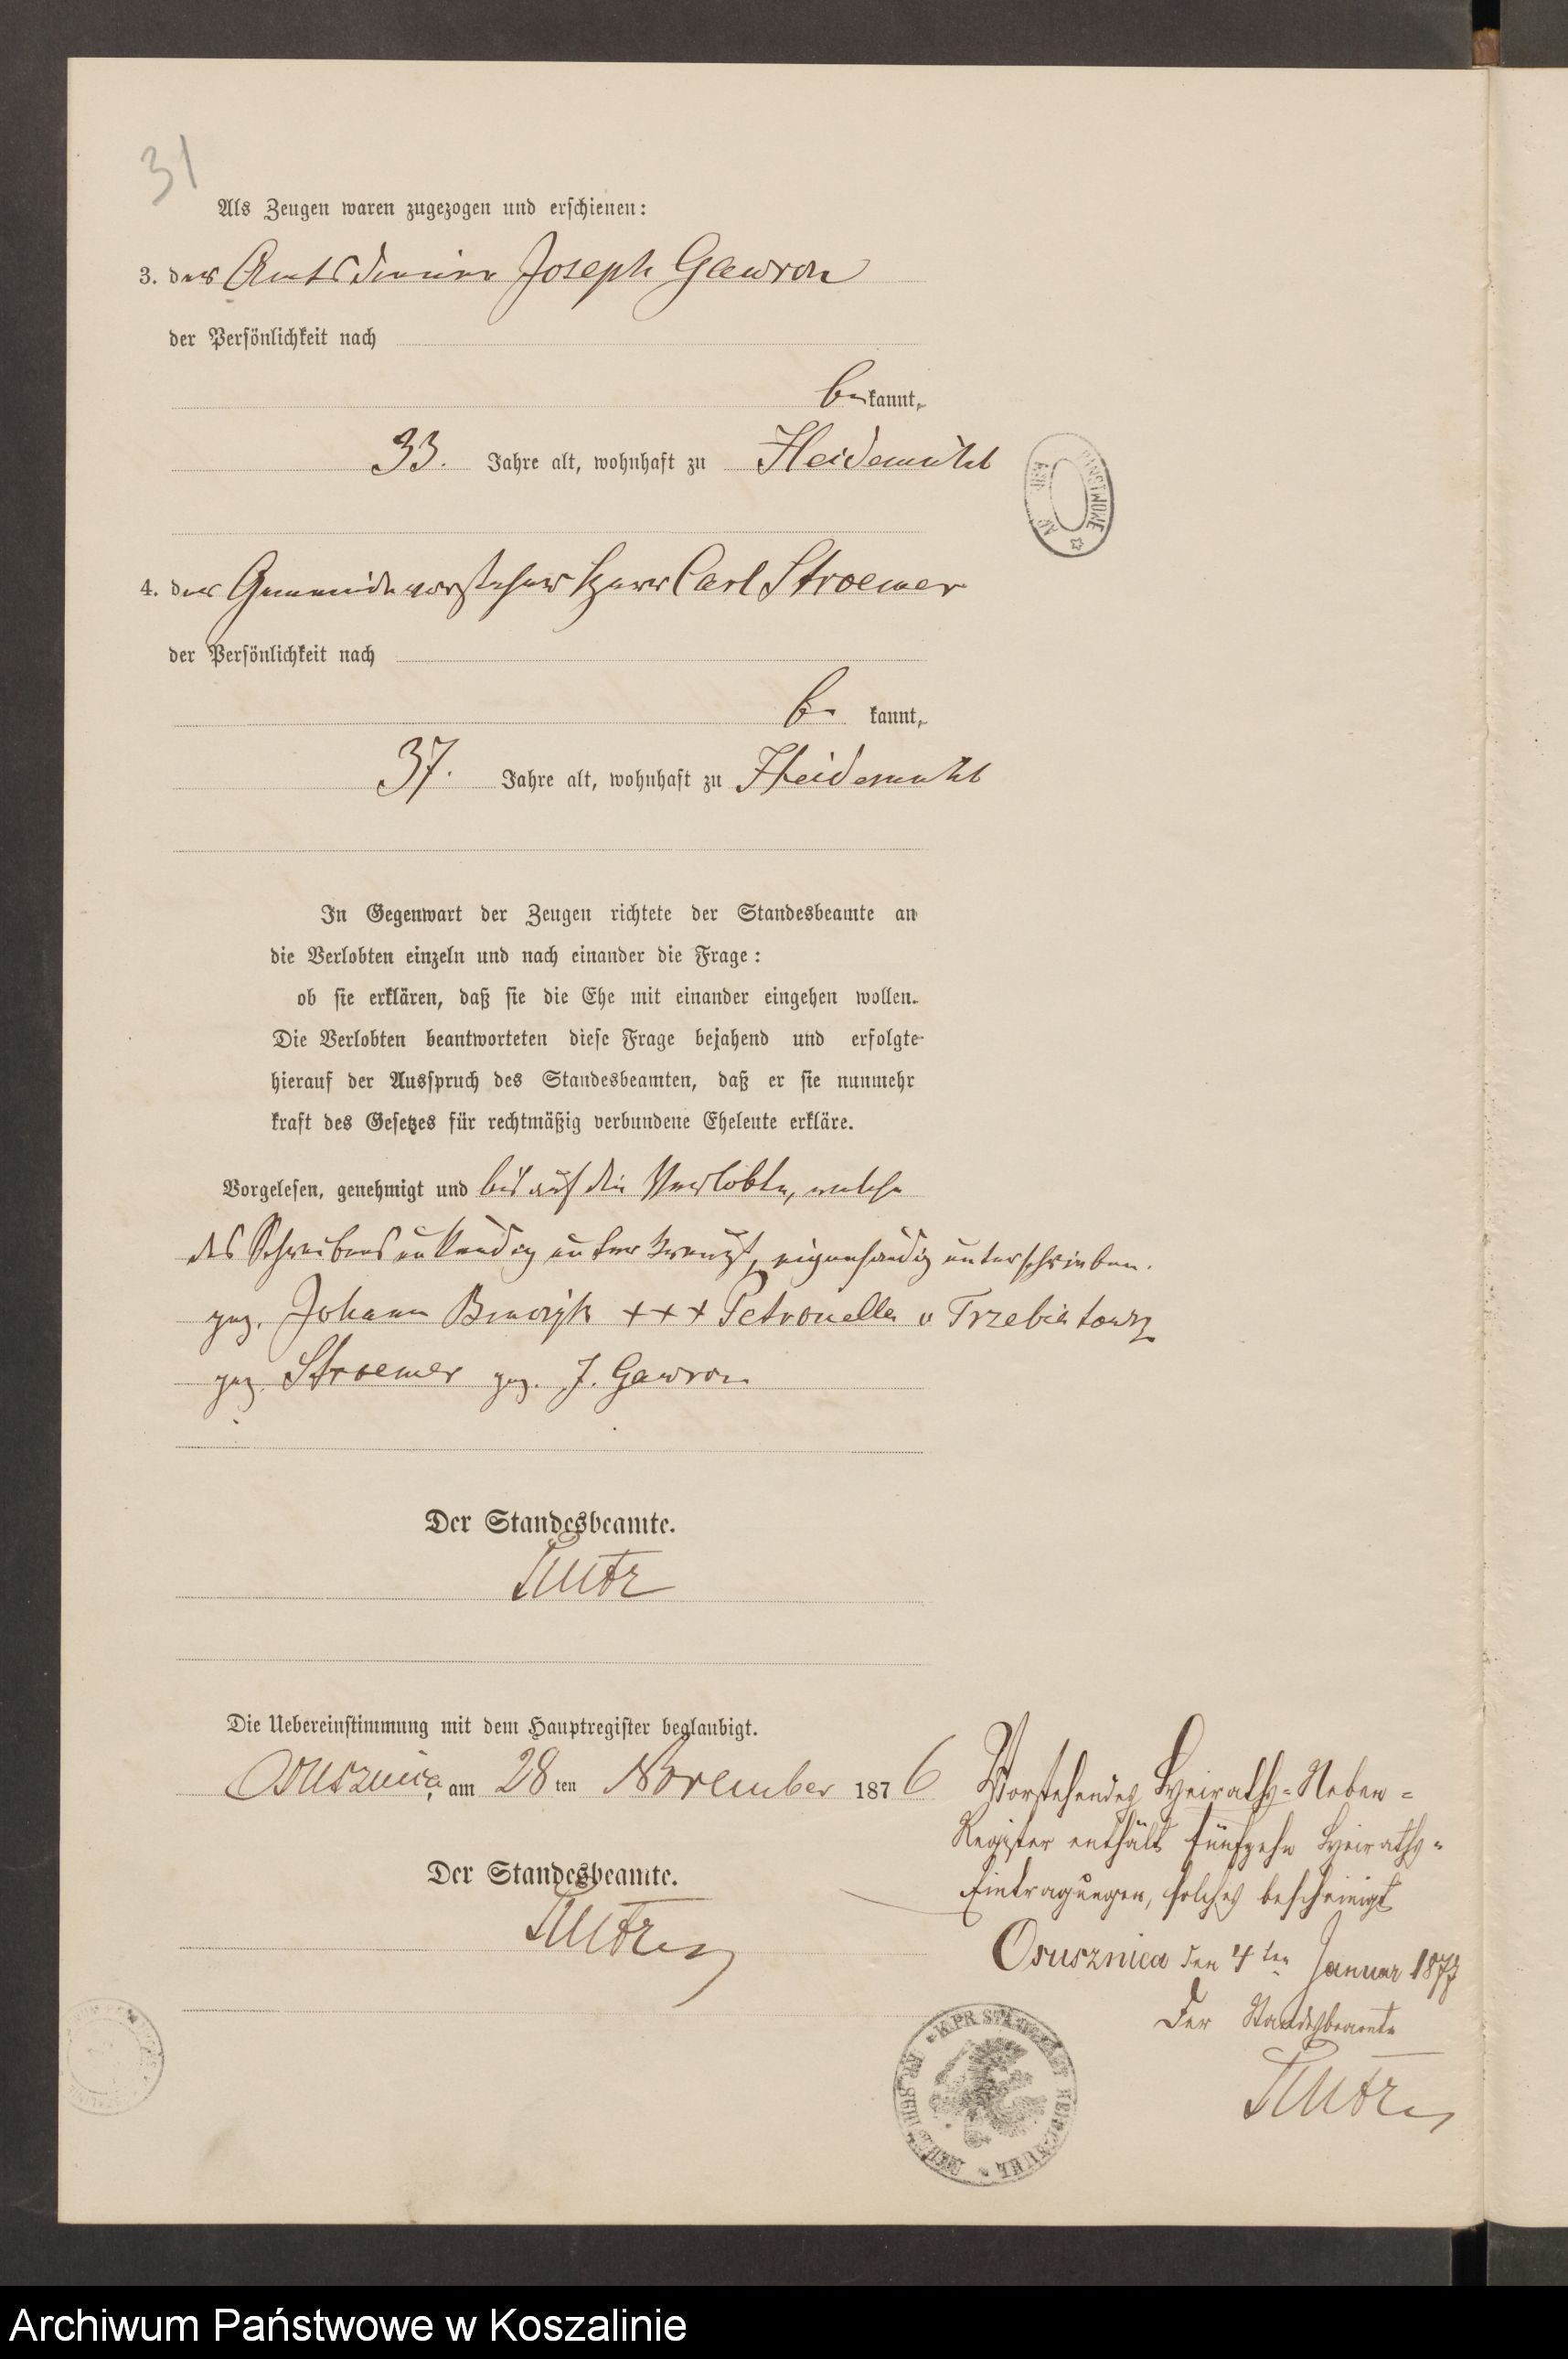 31
Als Zeugen waren zugezogen und erschienen:
3. der Amtsdiener Joseph Gawron
der Persönlichkeit nach
bekannt,
33. Jahre alt, wohnhaft zu Heidemühl
4. der Gemeindevorsteher Herr Carl Stroemer
der Persönlichkeit nach
be kannt,
37. Jahre alt, wohnhaft zu Heidemühl
In Gegenwart der Zeugen richtete der Standesbeamte an
die Verlobten einzeln und nach einander die Frage:
ob sie erklären, daß sie die Ehe mit einander eingehen wollen.
Die Verlobten beantworteten diese Frage bejahend und erfolgte
hierauf der Ausspruch des Standesbeamten, daß er sie nunmehr
kraft des Gesetzes für rechtmäßig verbundene Eheleute erkläre.
Vorgelesen, genehmigt und bis auf die Verlobte, welche
des Schreibens unkundig unterkreuzt, eigenhändig unterschrieben.
gez. Johann +++ Petronella v Trzebiatowsk
gez. Stroemer gez. J. Gawron
Der Standesbeamte.
Die Uebereinstimmung mit dem Hauptregister beglaubigt.
Osusznica, am 28 ten November 1876
Der Standesbeamte.
Vorstehendes Heiraths-Neben-
Register enthält fünfzehn Heiraths-
Eintragungen, solches bescheinigt
Osusznica den 4ten Januar 1877
Der Standesbeamte
Archiwum Państwowe w Koszalinie